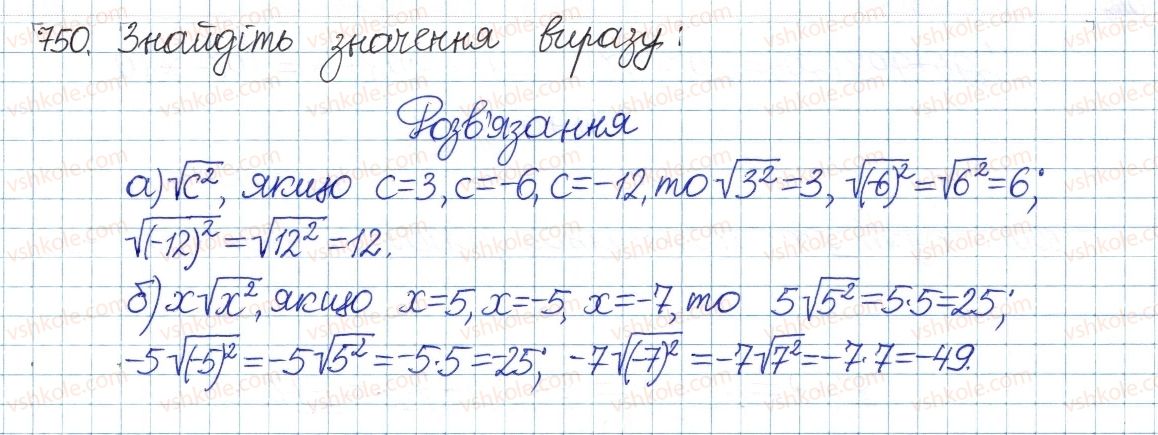 750. Знайдіть значення виразу:
Розв'язання
а) √c², якщо c=3, c=-6, c=-12, то √3²=3, √(-6)²=√6²=6;
√(-12)²=√12²=12.
б) x√x², якщо x=5, x=-5, x=-7, то 5√5²=5·5=25;
-5√(-5)²=-5√5²=-5·5=-25; -7√(-7)²=-7√7²=-7·7=-49.